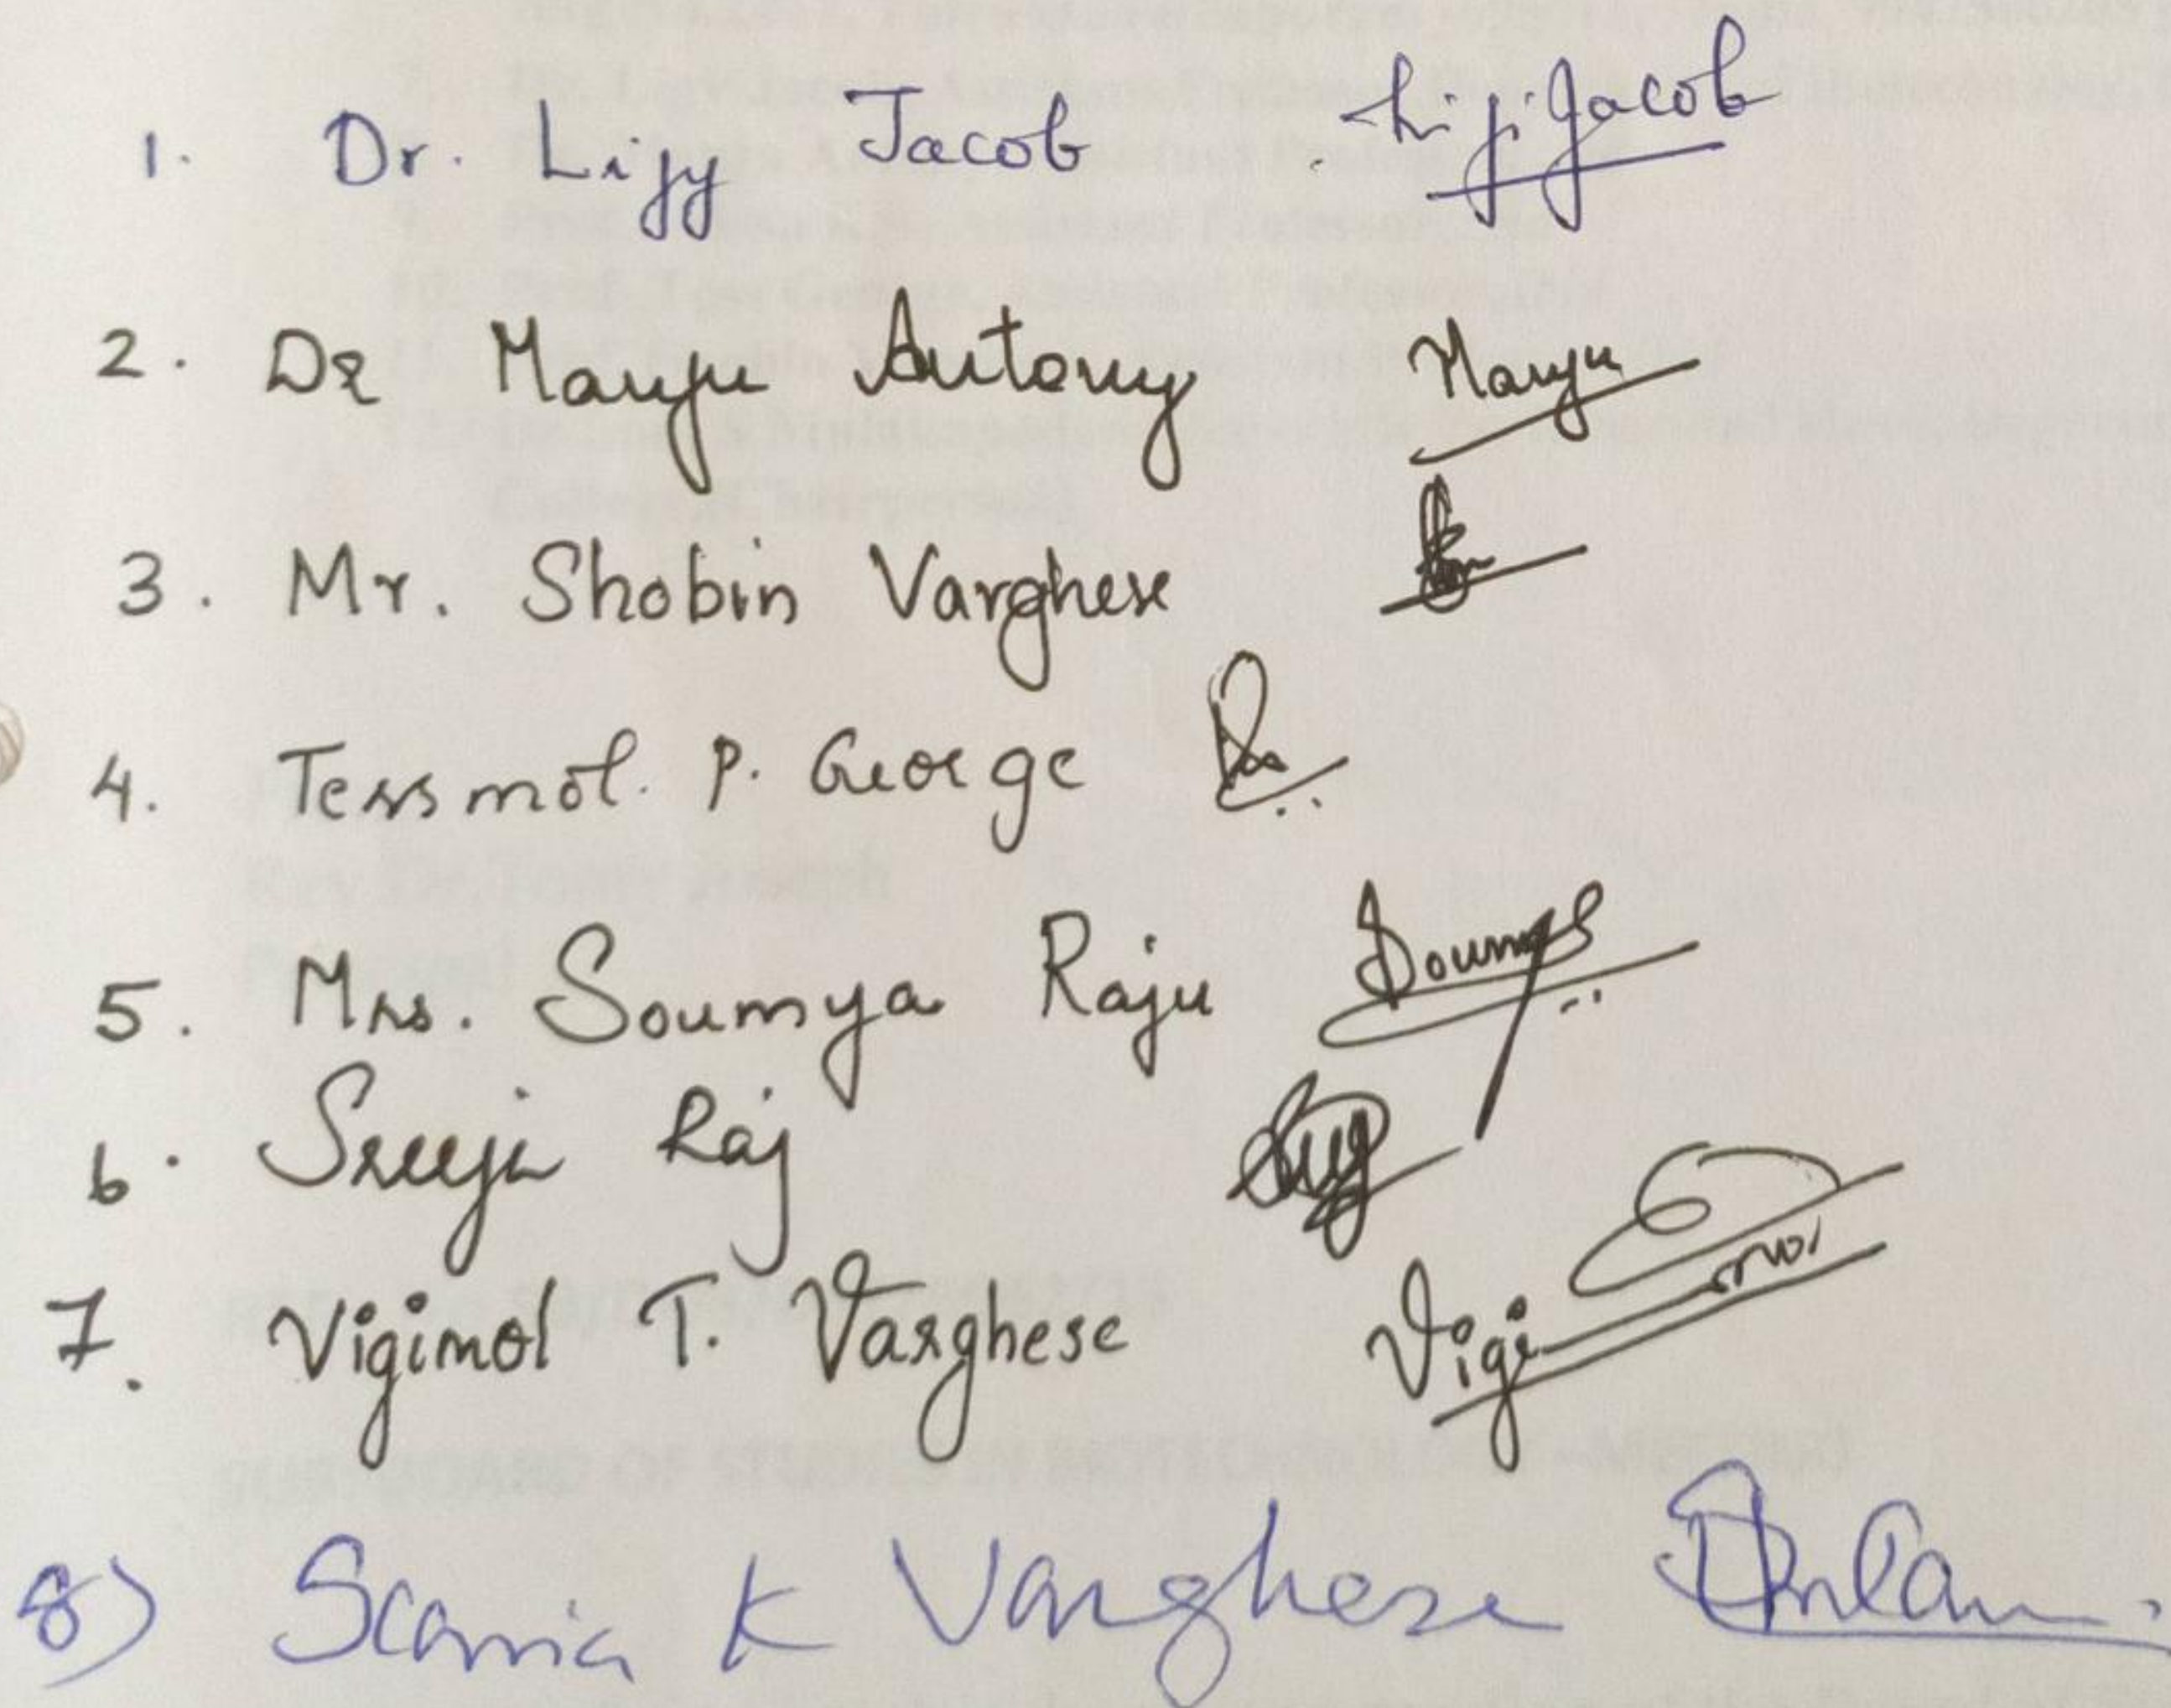 1. Dr. Lijy Jacob Liji Jacob
2. Dr Manju Antony Manju
3. Mr. Shobin Varghese
4. Tessmol. P. George
5. Mrs. Soumya Raju Soumya
6. Sreeja Raj
7. Vigimol T. Varghese Vigimol
8) Scaria K Varghese